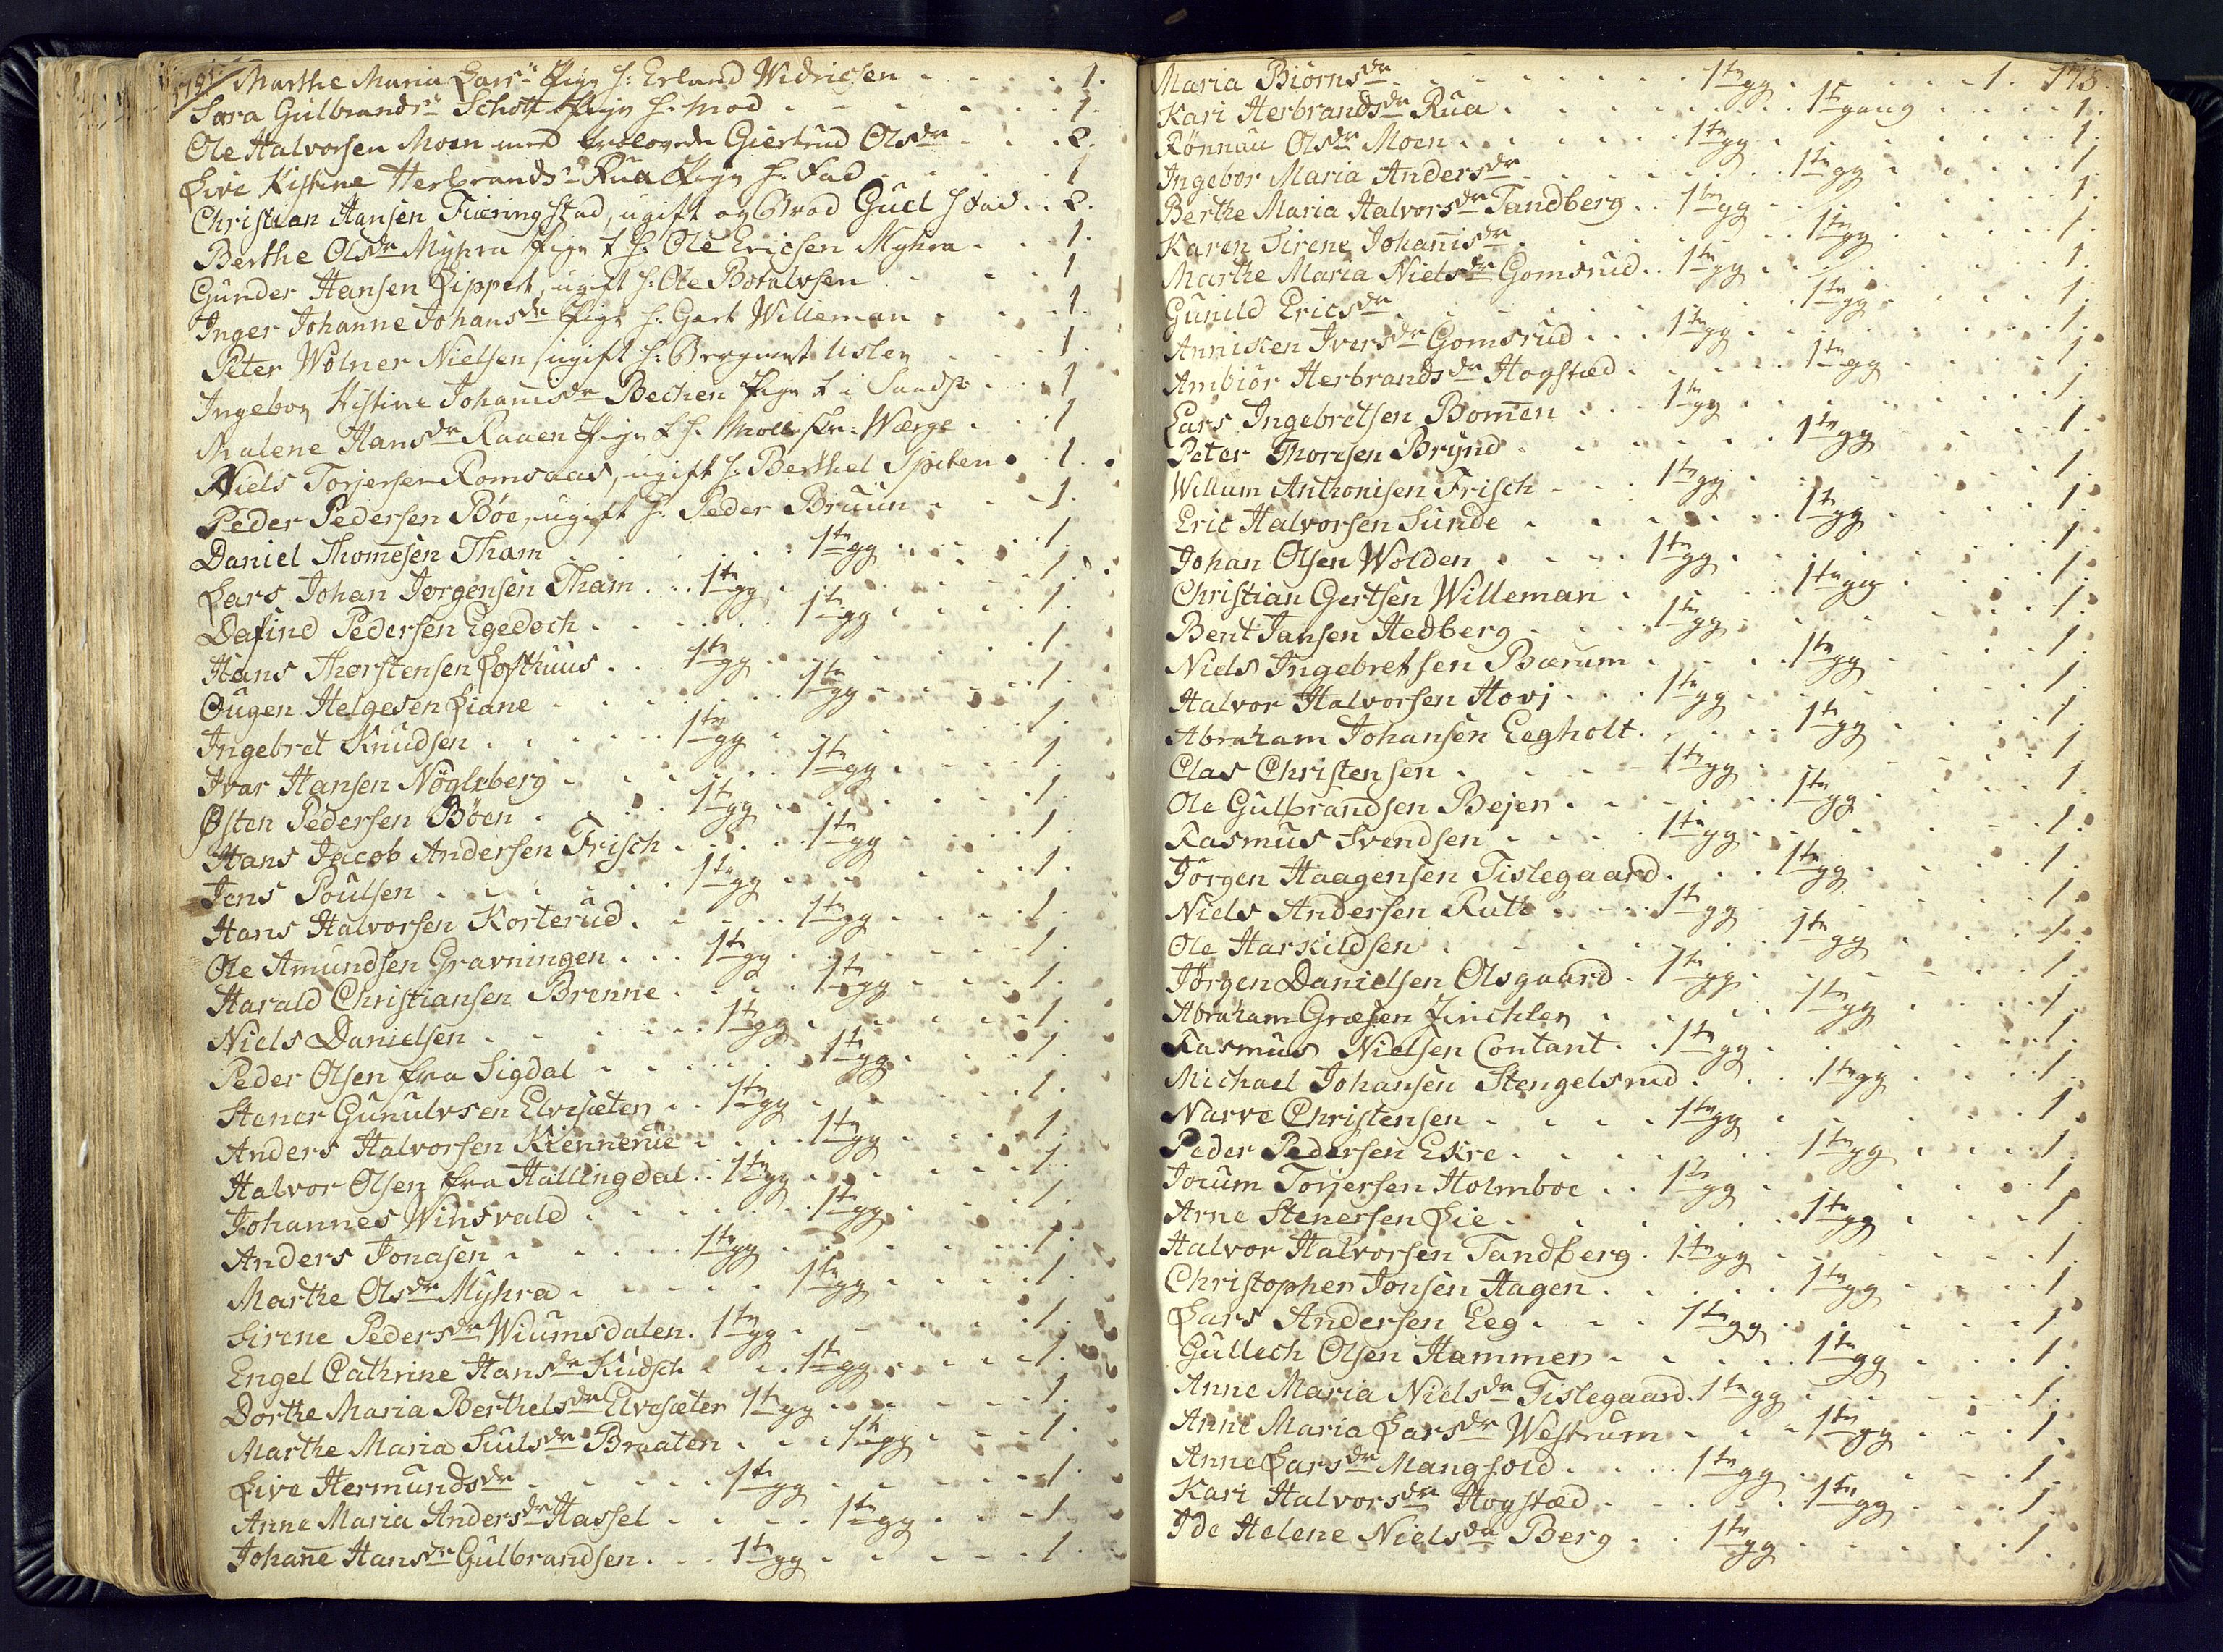 1791. Marthe Maria Lars dr Pige h: Erland Widricsen . . . 1.
Sara Gulbrands dr Schott Pige h: Mod . . . 1.
Ole Halvorsen Moen med trolovede Giertrud Olsdr . . . 2.
Live Kistine Herbrandsdr Rua Pige h. Fad . . . 1
Christian Hansen Fiæringstad, ugift og Brod Gucl h Fad . . 2.
Berthe Olsdr Myhra Pige t h: Ole Ericsen Myhra . . . 1.
Gunder Hansen Lippert, ugift h: Ole Botolvsen . . . 1
Inger Johanne Johansdr Pige h: Gert Willeman . . . 1.
Peter Wølner Nielsen, ugift h: Bergamt . . . 1.
Ingebor Kistine Johanisdr Bechen Pige t i Sandsv: . . . 1
Malene Hansdr Raaen Pige t h. Wærge . . . 1
Niels Torjersen Romsaas, ugift h: Berthel Spiten . . . 1.
Peder Pedersen Böe, ugift h: Peder Bruun . . . 1.
Daniel Thomesen Tham . . . 1te gg . . . 1.
Lars Johan Jørgensen Tham . . . 1te gg . . . 1.
Dafind Pedersen Egedoch . . . 1te gg . . . 1.
Hans Thorstensen Lofthuus . . . 1te gg . . . 1.
Ougen Helgesen Liane . . . 1te gg . . . 1.
Ingebret Knudsen . . . 1te gg . . . 1.
Ivar Hansen Nögleberg . . . 1te gg . . . 1.
Østen Pedersen Böen . . . 1te gg . . . 1.
Hans Jacob Andersen Frisch . . . 1te gg . . . 1.
Jens Poulsen . . . 1te gg . . . 1.
Hans Halvorsen Korterud . . . 1te gg . . . 1.
Ole Amundsen Gravningen . . . 1te gg . . . 1.
Harald Christiansen Brenne . . . 1te gg . . . 1.
Niels Danielsen . . . 1te gg . . . 1.
Peder Olsen fra Sigdal . . . 1te gg . . . 1.
Stener Gunulvsen Elvesæter . . . 1te gg . . . 1.
Anders Halvorsen Kiennerue . . . 1te gg . . . 1.
Halvor Olsen fra Hallingdal . . . 1te gg . . . 1.
Johannes Winsvald . . . 1te gg . . . 1.
Anders Jonasen . . . 1te gg . . . 1.
Marthe Olsdr Myhra . . . 1te gg . . . 1.
Sirene Pedersdr Wiumsdalen . . . 1te gg . . . 1.
Engel Cathrine Hansdr Kudsch . . . 1te gg . . . 1.
Dorthe Maria Berthelsdr Elvesæter 1te gg . . . 1.
Marthe Maria Siulsdr Braaten . . . 1te gg . . . 1.
Live Hermundsdr . . . 1te gg . . . 1.
Anne Maria Andersdr Hassel . . . 1te gg . . . 1
Johane Hansdr Gulbrandsen . . . 1te gg . . . 1.
Maria Biørnsdr . . . 1te gg . . . 1. 175.
Kari Herbrandsdr Rua . . . 1te gang . . . 1.
Rönnau Olsdr Moen . . . 1te gg . . . 1.
Ingebor Maria Andersdr . . . 1te gg . . . 1.
Berthe Maria Halvorsdr Tandberg . . 1te gg . . . 1.
Karen Sirene Johanisdr . . . 1te gg . . . 1.
Marthe Maria Nielsdr Gomsrud . . 1te gg . . . 1.
Gunild Ericsdr . . . 1te gg . . . 1.
Anniken Iversdr Gomsrud . . . 1te gg . . . 1.
Ambiör Herbrandsdr Hogstæd . . . 1te gg . . . 1.
Lars Ingebretsen Bomen . . . 1te gg . . . 1.
Peter Thoresen Brynd . . . 1te gg . . . 1.
Willum Anthonisen Frisch . . . 1te gg . . . 1.
Eric Halvorsen Sunde . . . 1te gg . . . 1.
Johan Olsen Wolden . . . 1te gg . . . 1.
Christian Gertsen Willeman . . . 1te gg . . . 1.
Bent Jansen Hedberg . . . 1te gg . . . 1.
Niels Ingebretsen Bærum . . . 1te gg . . . 1.
Halvor Halvorsen Hovj . . . 1te gg . . . 1.
Abraham Johansen Eegholt . . . 1te gg . . . 1.
Clas Christensen . . . 1te gg . . . 1
Ole Gulbrandsen Bejer . . . 1te gg . . . 1.
Rasmus Svendsen . . . 1te gg . . . 1.
Jörgen Haagensen Tislegaard . . . 1te gg . . . 1.
Niels Andersen Rutt . . . 1te gg . . . 1.
Ole Harkildsen . . . 1te gg . . . 1.
Jørgen Danielsen Olsgaard . 1te gg . . . 1.
Abraham Græsen Zinchler . . . 1te gg . . . 1.
Rasmus Nielsen Contant . . 1te gg . . . 1.
Michael Johansen Stengelsrud . . . 1te gg . . . 1.
Narve Christensen . . . 1te gg . . . 1.
Peder Pedersen Ekre . . . 1te gg . . . 1.
Jocum Torjersen Holmboe . . 1te gg . . . 1
Arne Stenersen Lie . . . 1te gg . . . 1.
Halvor Halvorsen Tandberg . 1te gg . . . 1.
Christopher Jonsen Hagen . . . 1te gg . . . 1
Lars Andersen Eeg . . . 1te gg . . . 1
Gullech Olsen Hammer . . . 1te gg . . . 1.
Anne Maria Nielsdr Tislegaard . 1te gg . . . 1.
Anne Maria Larsdr Westrum . . . 1te gg . . . 1.
Anne Larsdr Mangfold . . . 1te gg . . . 1.
Kari Halvorsdr Hogstæd . . . 1te gg . . . 1.
Ide Helene Nielsdr Berg . . 1te gg . . . 1.